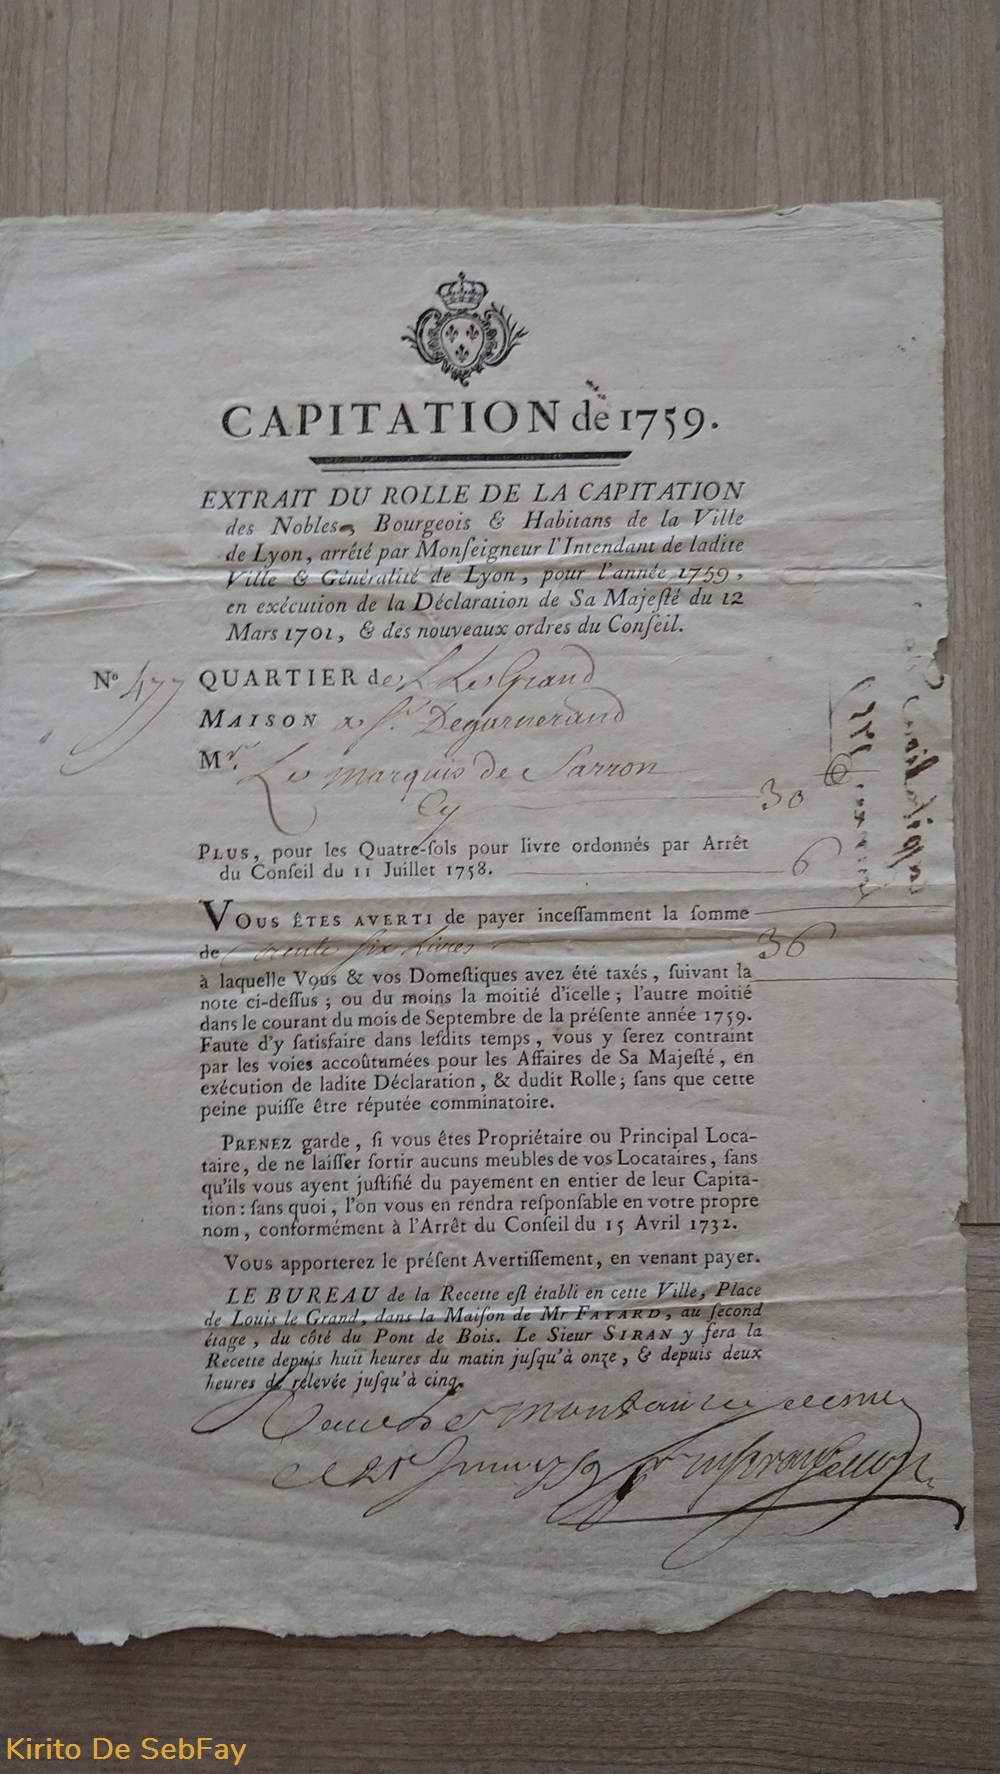 CAPITATION de 1759.
EXTRAIT DU ROLLE DE LA CAPITATION
des Nobles, Bourgeois & Habitans de la Ville
de Lyon, arrêté par Monſeigneur l'Intendant de ladite
Ville & Généralité de Lyon, pour l'année 1759,
en exécution de la Déclaration de Sa Majeſté du 12
Mars 1701, & des nouveaux ordres du Conſeil.
No 477 QUARTIER de L Le Grand
MAISON
Mr. Le Marquis de Sarron
Cy 30
PLUS, pour les Quatre-ſols pour livre ordonnés par Arrêt
du Conſeil du 11 Juillet 1758. 6
VOUS ÊTES AVERTI de payer inceſſamment la ſomme
de trente ſix Livres 36
à laquelle Vous & vos Domeſtiques avez été taxés, ſuivant la
note ci-deſſus; ou du moins la moitié d'icelle; l'autre moitié
dans le courant du mois de Septembre de la préſente année 1759.
Faute d'y ſatisfaire dans leſdits temps, vous y ſerez contraint
par les voies accoûtumées pour les Affaires de Sa Majeſté, en
exécution de ladite Déclaration, & dudit Rolle; ſans que cette
peine puiſſe être réputée comminatoire.
PRENEZ garde, ſi vous êtes Propriétaire ou Principal Loca-
taire, de ne laiſſer ſortir aucuns meubles de vos Locataires, ſans
qu'ils vous ayent juſtifié du payement en entier de leur Capita-
tion: ſans quoi, l'on vous en rendra reſponſable en votre propre
nom, conformément à l'Arrêt du Conſeil du 15 Avril 1732.
Vous apporterez le préſent Avertiſſement, en venant payer.
LE BUREAU de la Recette eſt établi en cette Ville, Place
de Louis le Grand, dans la Maiſon de Mr FAYARD, au ſecond
étage, du côté du Pont de Bois. Le Sieur SIRAN y ſera la
Recette depuis huit heures du matin juſqu'à onze, & depuis deux
heures de relevée juſqu'à cinq.
Kirito De SebFay